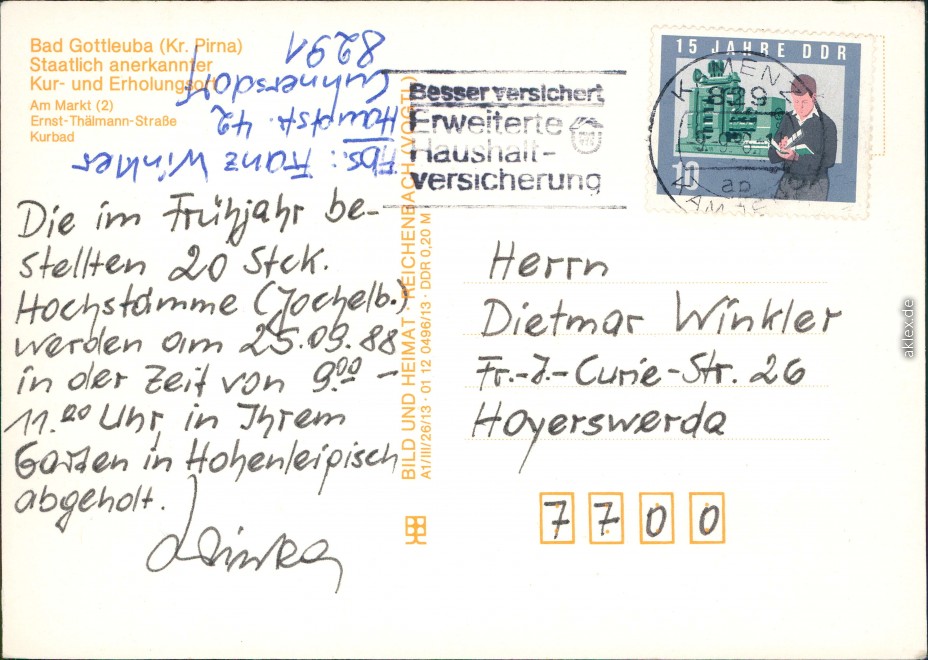 Bad Gottleuba (Kr. Pirna)
Staatlich anerkannter
Kur- und Erholungsort
Am Markt (2)
Ernst-Thälmann-Straße
Kurbad
Abs.: Franz Winkler
Hauptstr. 42
Cunnersdorf
8291
Besser versichert
Erweiterte
Haushalt-
versicherung
15 JAHRE DDR
10
KAMENZ
Die im Frühjahr be-
stellten 20 Stck.
Hochstämme (Jochelb.)
werden am 25.09.88
in der Zeit von 9.00 –
11.00 Uhr in Ihrem
Garten in Hohenleipisch
abgeholt.
BILD UND HEIMAT · REICHENBACH (VOGTL)
A1/III/26/13 · 01 12 0496/13 · DDR 0,20 M
Herrn
Dietmar Winkler
Fr.-J.-Curie-Str. 26
Hoyerswerda
7700
aklex.de